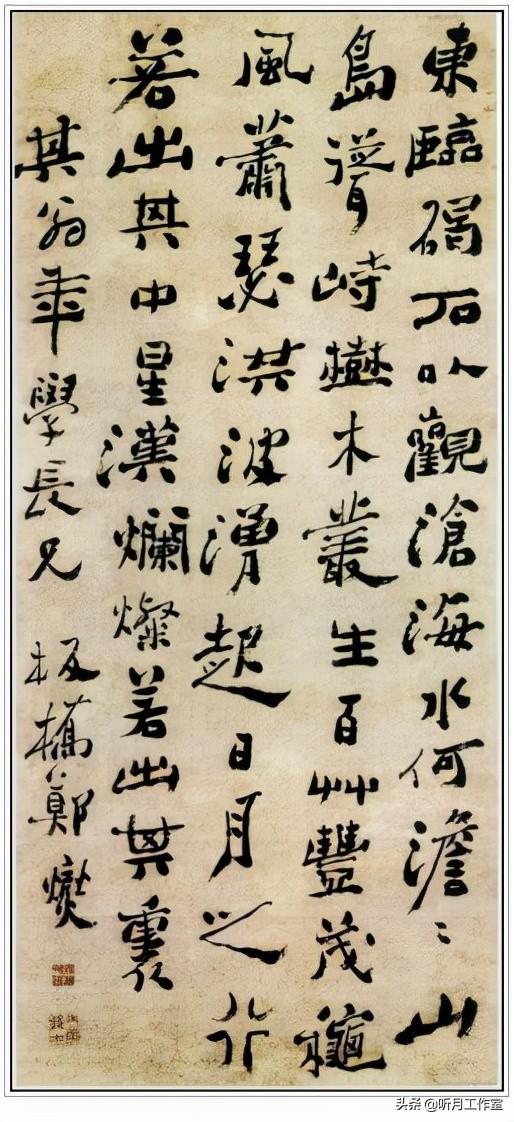 東臨碣石以觀滄海水何澹〻山
島聳峙樹木叢生百艸豐茂穐
風蕭瑟洪波湧起日月之行
若出其中星漢爛燦若出其裏
其翁年學長兄 板橋鄭燮
头条 @听月工作室